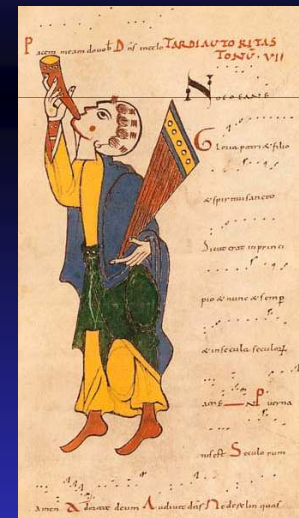 Pacem meam do vob Dñs in celo TARDI AUTORITAS
TONU · VII
NOEOEANE
Gloria patri & filio
& spiritui sancto
Sicut erat in princi
pio & nunc & semp
& in secula seculorꝝ
amē
Amen Adorate deum Audivit dñs